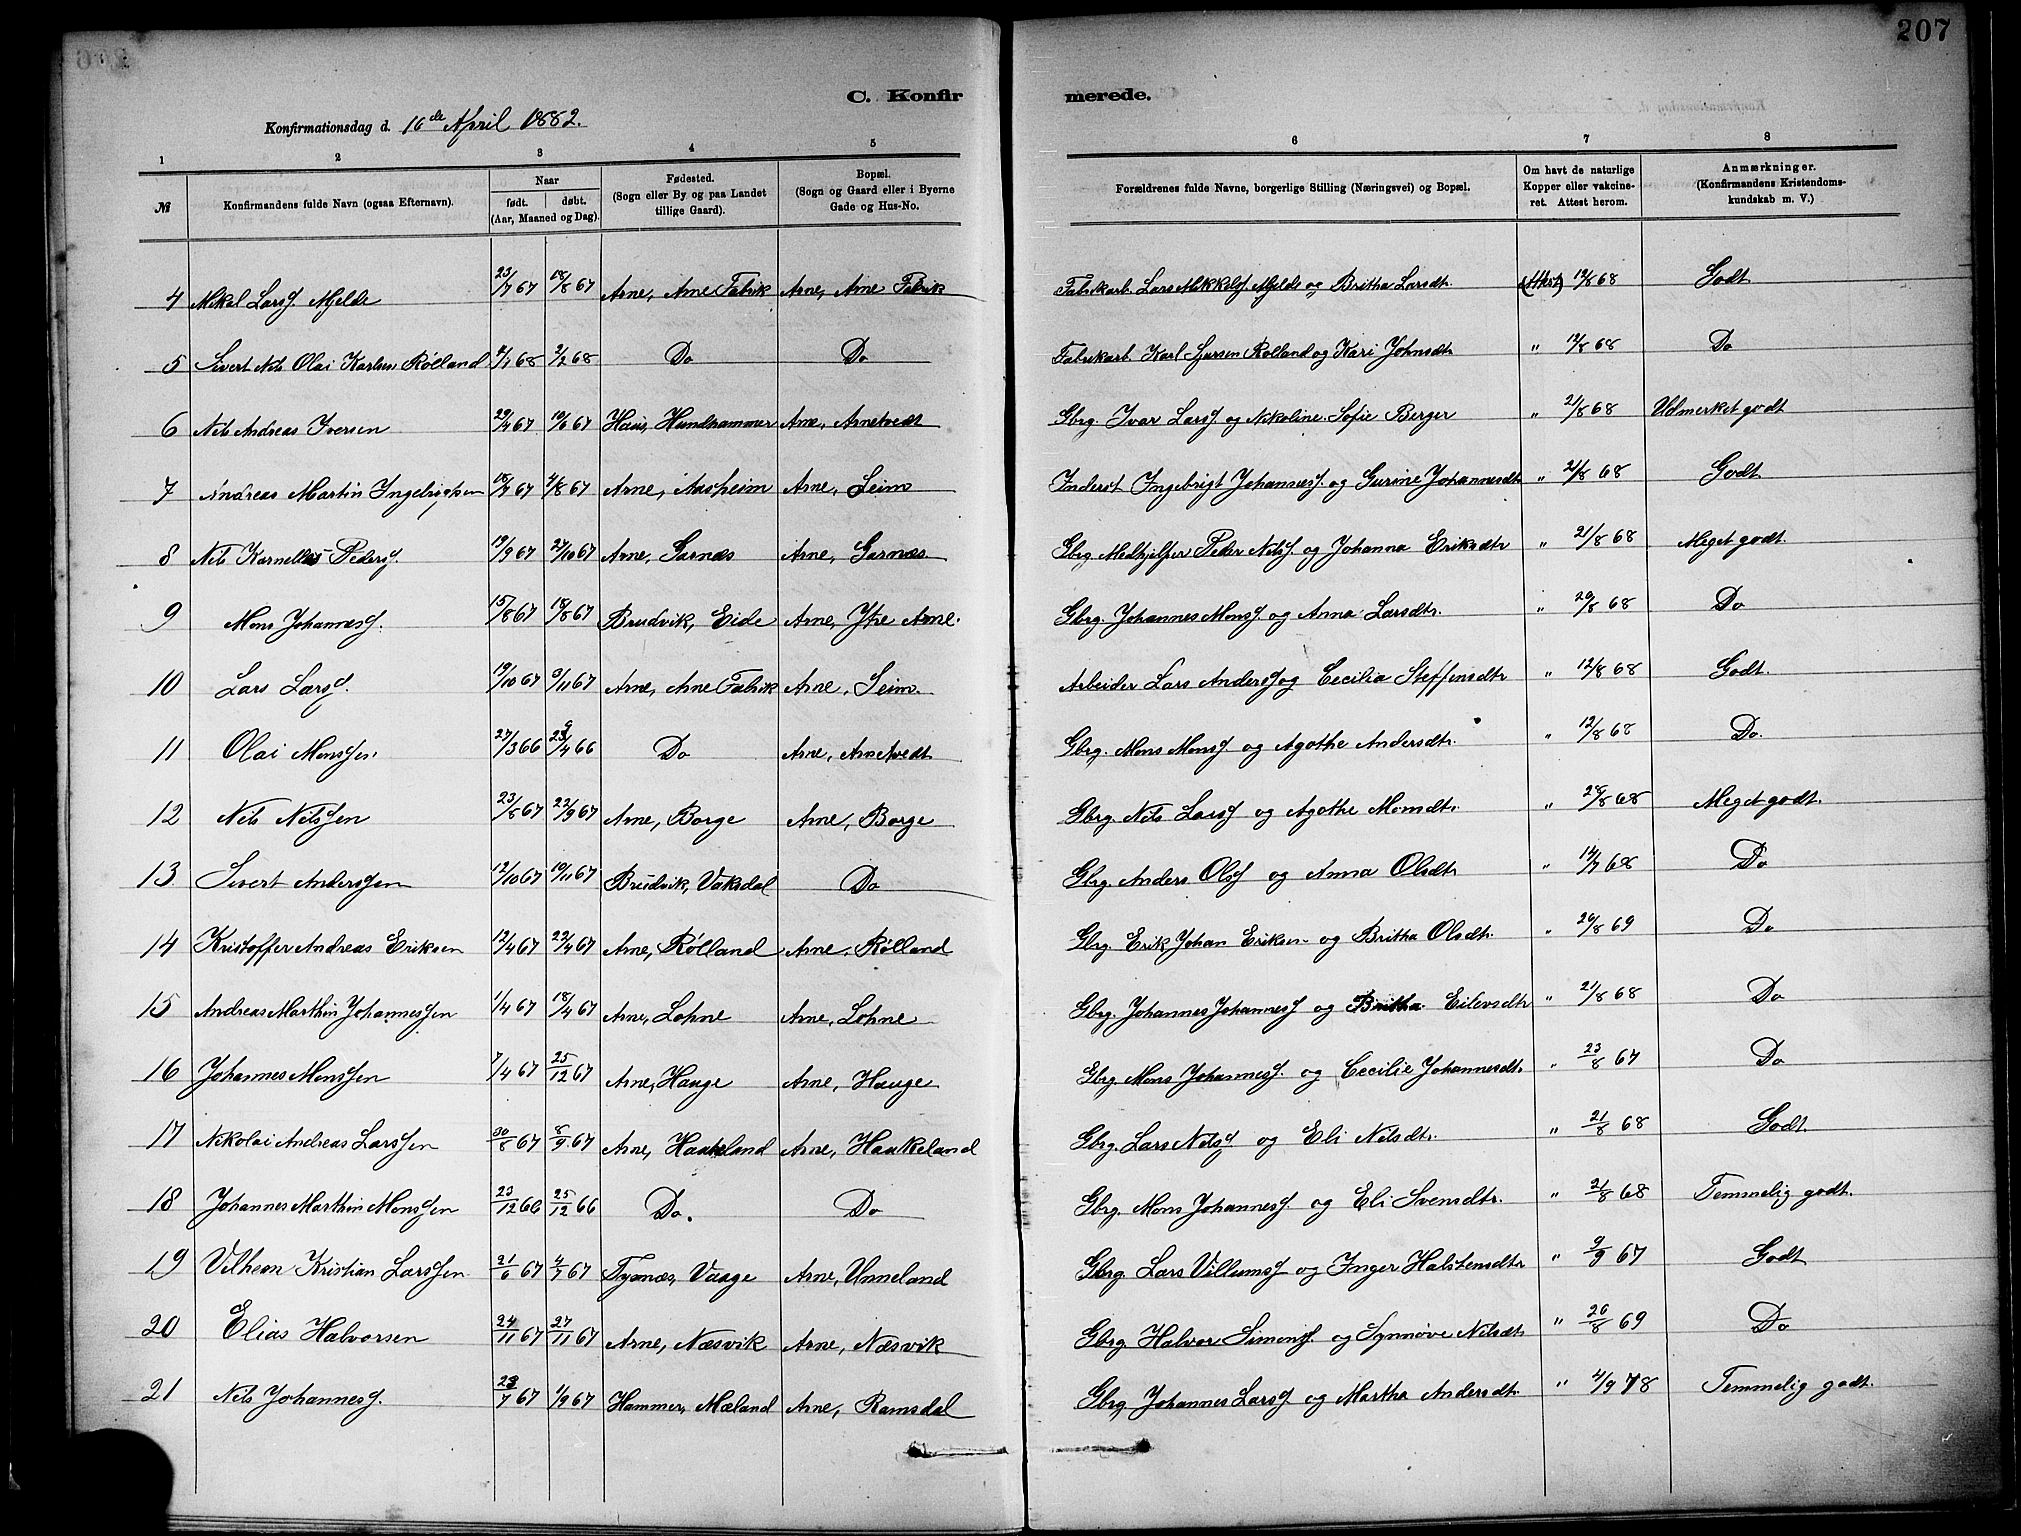 207
C. Konfirmerede.
Konfirmationsdag d. 16de April 1882.
1 2 3 4 5 6 7 8
№ Konfirmandens fulde Navn (ogsaa Efternavn). Naar født. døbt. (Aar, Maaned og Dag). Fødested. (Sogn eller By og paa Landet tillige Gaard). Bopæl. (Sogn og Gaard eller i Byerne Gade og Hus-No. Forældrenes fulde Navne, borgerlige Stilling (Næringsvei) og Bopæl. Om havt de naturlige Kopper eller vakcineret. Attest herom. Anmærkninger. (Konfirmandens Kristendomskundskab m. V.)
4 Mikal Larss. Mjelde 23/7 67 18/8 67 Arne, Arne Fabrik Arne, Arne Fabrik Fabrikarb. Lars Mikkels. Mjelde og Britha Larsdtr. (Attest) 12/8 68 Godt
5 Sivert Nils Olai Karlsen Rølland 2/2 68 Do Do Fabrikarb Karl Rolland og Kari Johnsdtr " 12/8 68 Do
6 Nils Andreas Iversen 29/4 67 10/6 67 Haus, Hundhammer Arne, Arnetvedt Gbrg. Ivar Larss. og Nikoline Sofie Berger " 21/8 68 Udmerket godt
7 Andreas Martin Ingebrigtsen 18/7 67 4/8 67 Arne, Aasheim Arne, Seim Inderst Ingebrigt Johanness. og Gurine Johannesdtr " 21/8 68 Godt
8 Nils Kornelius Peders. 19/9 67 27/10 67 Arne, Garnæs Arne, Garnæs Gbrg. Medhjelper Peder Nilss. og Johanna Eriksdtr " 21/8 68 Meget godt
9 Mons Johanness. 15/8 67 18/8 67 Brudvik, Eide Arne, Ytre Arne. Gbrg. Johannes Monss. og Anna Larsdtr. " 20/8 68 Do
10 Lars Larss. 19/10 67 9/11 67 Arne, Arne Fabrik Arne, Seim. Arbeider Lars Anderss og Cecilia Steffensdtr " 12/8 68 Godt.
11 Olai Monssen. 27/3 66 66 Do Arne, Arnetvedt Gbrg. Mons Monss. og Agathe Andersdtr. " 12/8 68 Do.
12 Nils Nilssen 23/8 67 22/9 67 Arne, Borge Arne, Borge Gbrg. Nils Larss og Agathe Monsdtr. " 20/8 68 Meget godt.
13 Sivert Anderssen 12/10 67 10/11 67 Brudvik, Vaksdal Do Gbrg. Anders Olss og Anna Olsdtr " 14/7 68 Do
14 Kristoffer Andreas Eriksen 12/4 67 22/4 67 Arne, Rølland Arne, Rølland Gbrg. Erik Johan Eriksen og Britha Olsdtr. " 26/8 69 Do
15 Andreas Marthin Johannessen 1/4 67 18/4 67 Arne, Lohne Arne, Lohne Gbrg. Johannes Johanness og Britha Eilevsdtr " 21/8 68 Do
16 Johannes Monssen 7/4 67 25/12 67 Arne, Hauge Arne, Hauge Gbrg. Mons Johanness. og Cecilie Johannesdtr. " 23/8 67 Do
17 Nikolai Andreas Larssen 30/8 67 8/9 67 Arne, Haukeland Arne, Haukeland Gbrg. Lars Nilss og Eli Nilsdtr. " 21/8 68 Godt
18 Johannes Marthin Monssen 23/12 66 25/12 66 Do. Do Gbrg. Mons Johanness. og Eli Svensdtr. " 21/8 68 Temmelig godt.
19 Vilhem Kristian Larssen 21/6 67 4/7 67 Tysnæs, Vaage Arne, Unneland Gbrg. Lars Villumss og Inger Halstensdtr " 9/9 67 Godt
20 Elias Halvorsen 24/11 67 27/11 67 Arne, Næsvik Arne, Næsvik Gbrg. Halvor Simons. og Synnøve Nilsdtr " 26/8 69 Do
21 Nils Johanness. 23/7 67 1/9 67 Hammer, Mæland Arne, Ramsdal Gbrg. Johannes Larss og Martha Andersdtr. " 4/9 78 Temmelig godt.